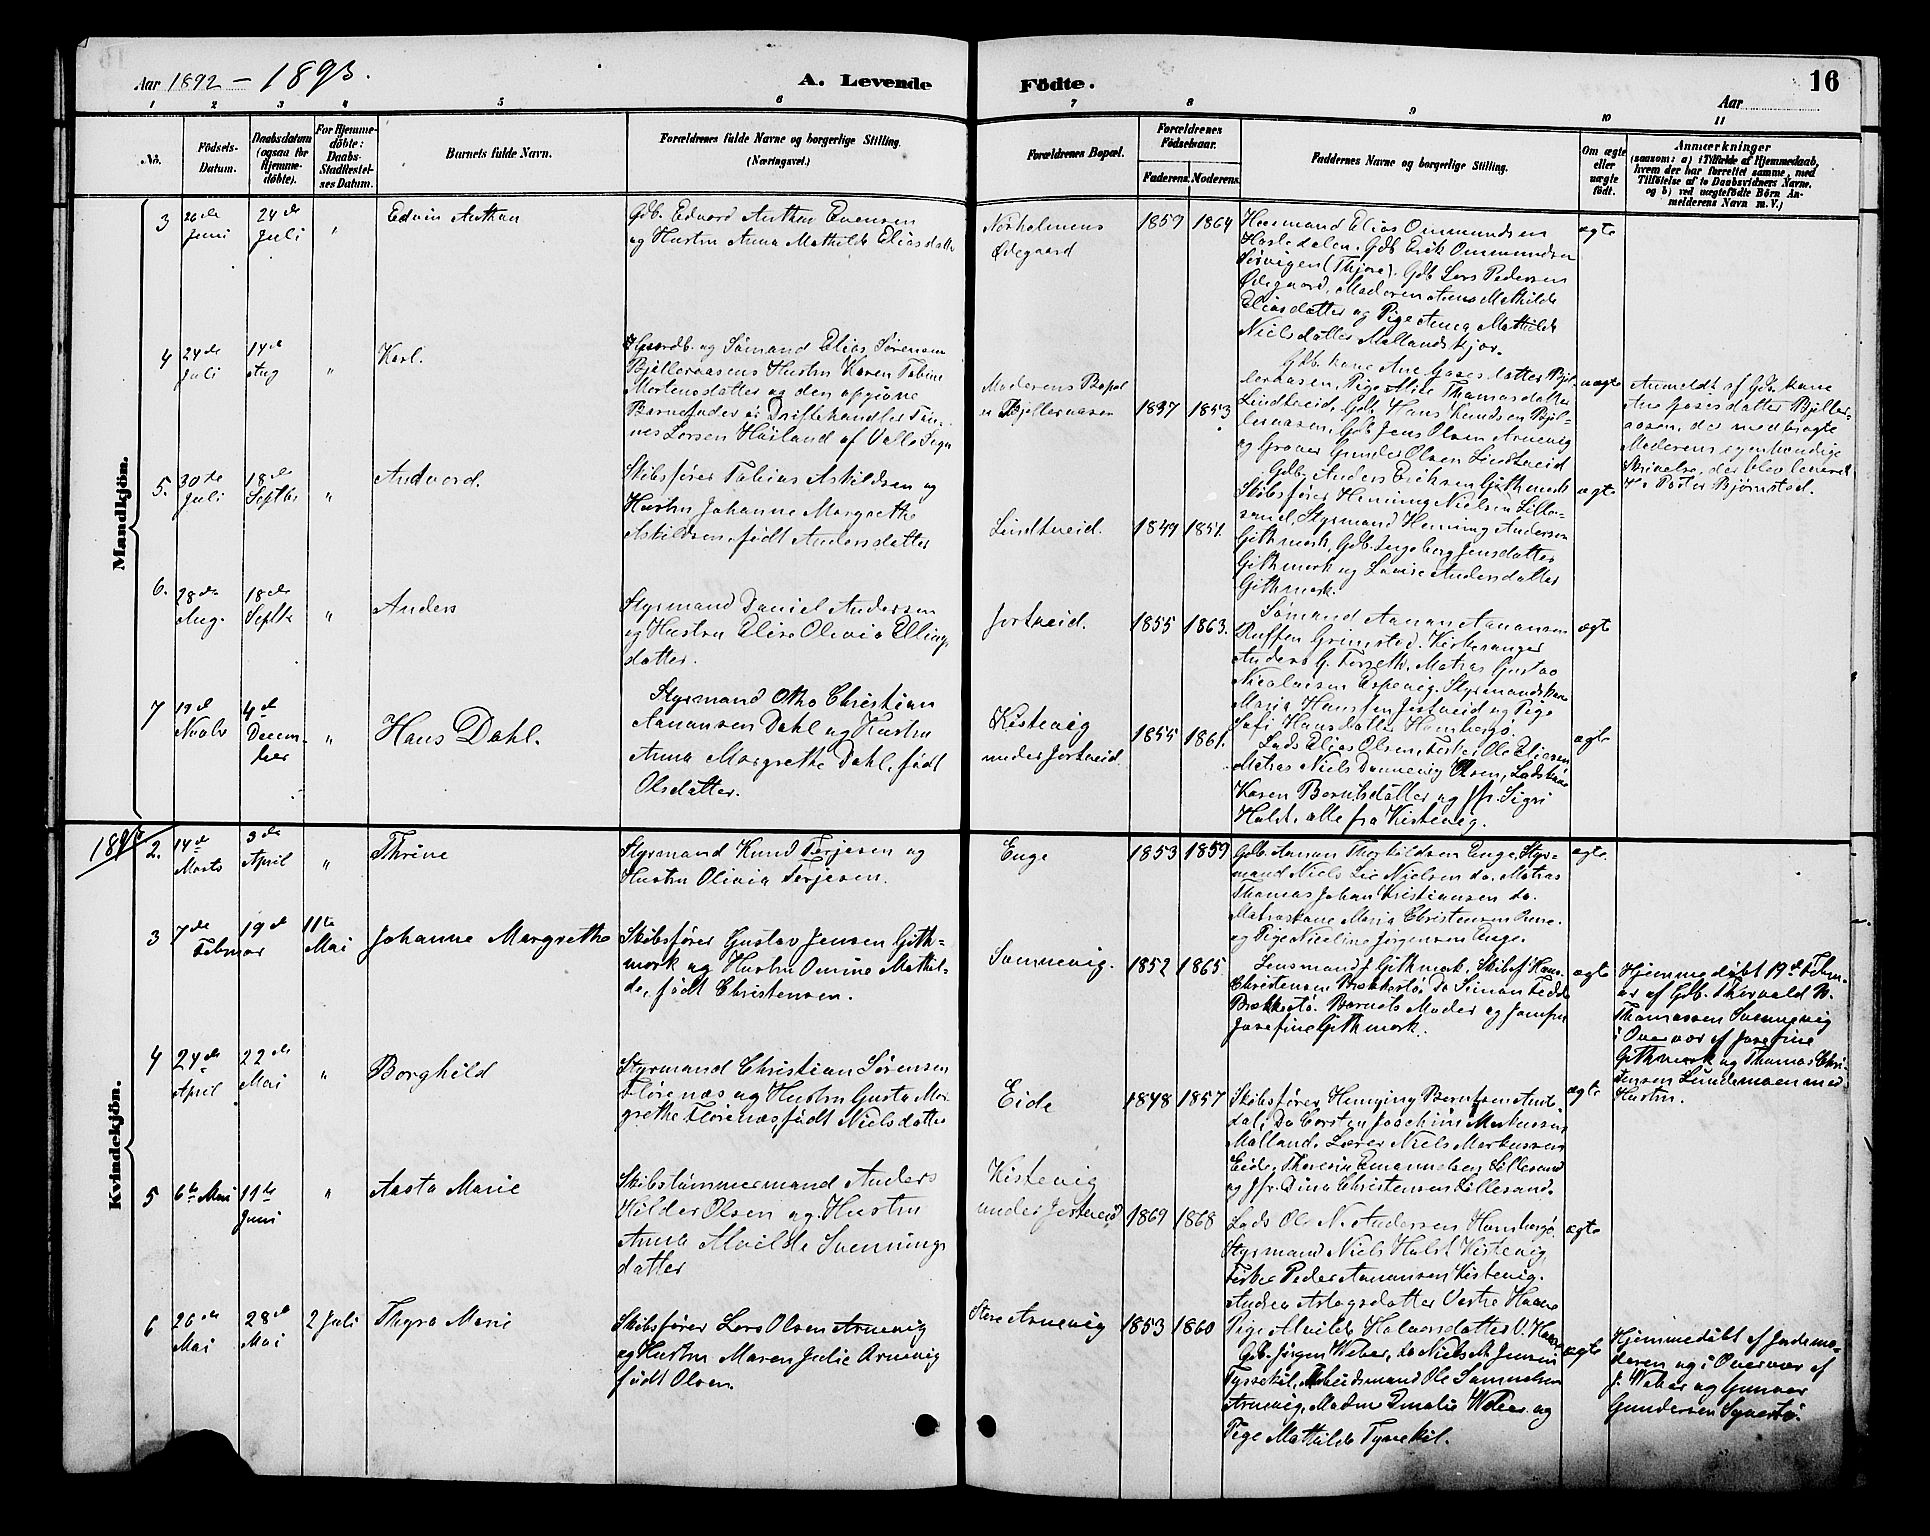 Aar 1892 – 1893.
A. Levende
Födte.
16
Aar
1 2 3 4 5 6 7 8 9 10 11
No.
Födsels-
Datum.
Daabsdatum
(ogsaa for
Hjemme-
döbte).
For Hjemme-
döbte:
Daabs-
Stadfæstel-
ses Datum.
Barnets fulde Navn.
Forældrenes fulde Navne og borgerlige Stilling.
(Næringsvei.)
Forældrenes Bopæl.
Forældrenes
Födselsaar.
Faderens.
Moderens.
Faddernes Navne og borgerlige Stilling.
Om ægte
eller
uægte
födt.
Anmærkninger
(saasom: a) i Tilfælde af Hjemmedaab,
hvem der har forrettet samme, med
Tilföielse af to Daabsvidners Navne,
og b) ved uægtefödte Börn An-
melderens Navn m. V.)
Mandkjön.
3
26de
Juni
24de
Juli
"
Edvin Anthon
Gdb. Edvard Anthon Evensen
og Hustru Anna Mathilde Eliasdatter
Norholmens
Ødegaard
1857
1864
Huusmand Elias Ommundsen
Hasledalen. Gdb. Erik Ommundsen
Gdb. Lars Pedersen
Ødegaard, Moderen Anna Mathilde
Eliasdatter og Pige Anna Mathilde
Nielsdatter
ægte
4
24de
Juli
14de
Aug
"
Karl.
og Sømand Elias Sørensen
Bjelleraasens Hustru Karen Tobine
Mortensdatter og den opgivne
Barnefader er Driftehandler
Larsen Høiland af Valle Sogn
Moderens Bopæl
er Bjelleraasen
1837
1853
Gdb. kone Ane Aasesdatter Bjel-
leraasen, Pige Alise Thomasdatter
Lindtveid, Gdb. Hans Knudsen Bjel-
leraasen, Gdb. Jens Olsen Arnevig
og Graver Gunder Olsen Lindtveid
uægte
Anmeldt af Gdb. kone
Ane Aasesdatter Bjeller-
aasen, der medbragte
Moderens egenhændige
Skrivelse, der blev leveret
Pastor Bjørnstad.
5.
30te
Juli
18de
Septbr
"
Andvord.
Skibsfører Tobias Askildsen og
Hustru Johanne Margrethe
Askildsen, født Andersdatter
Lindtveid.
1849
1851.
Gdb. Anders Eriksen Githmark
Skibsfører Henning Nielsen Lille-
sand, Styrmand Henning Andersen
Githmark, Gdb. Ingeborg Jensdatter
Githmark og Lovise Andersdatter
Githmark.
ægte
6.
28de
Aug.
18de
Septbr
"
Anders
Styrmand Daniel Andersen
og Hustru Elise Olivia Ellings-
datter.
Jortveid.
1855
1863.
Sømand Aanan Aanansen
Ruffen Grimstad. Kirkesanger
Anders G. Forseth, Matros Gustav
Nicolaisen Espevig. Styrmandskone
Maria Hansen Jortveid og Pige
Sofi Hansdatter Homborgø.
ægte
7
19de
Novbr
4de
Decem-
ber
"
Hans Dahl.
Styrmand Otto Christian
Aanansen Dahl og Hustru
Anna Margrethe Dahl, født
Olsdatter.
Kistevig
under Jortveid.
1855
1861.
Lods Elias Olsen, Fisker Ole Eliesen
Matros Niels Dannevig Olsen, Lodskone
Karen Berntsdatter og Jfr. Sigri
Holst, alle fra Kistevig.
ægte
Kvindekjön.
2.
14de
Marts
3de
April
"
Thrine
Styrmand Knud Terjesen og
Hustru Olivia Terjesen.
Enge
1853
1859
Gdb. Aanan Thorkildsen Enge, Styr-
mand Niels Lie Nielsen do. Matros
Thomas Johan Kristiansen do.
Matroskone Maria Christensen
og Pige Nicoline Jørgensen Enge.
ægte
3
7de
Februar
19de
11te
Mai
Johanne Margrethe
Skibsfører Gustav Jensen Gith-
mark og Hustru Omine Mathil-
de, født Christensen.
Sannevig.
1852
1865.
Lensmand J. Githmark, Skibsf. Hans
Christensen Brekkestø, Do Simon
Brekkestø. Barnets Moder og Jomfru
Josefine Githmark.
ægte
Hjemmedøbt 19de Febru-
ar af Gdb. Thorvald N.
Thomassen Sannevig
i Overvær af Josefine
Githmark og Thomas Chri-
stensen Lundemoen med
Hustru.
4
24de
April
22de
Mai
"
Borghild
Styrmand Christian Sørensen
Florenæs og Hustru Gusta Mar-
grethe Florenæs, født Nielsdatter
Eide
1848
1857
Skibsfører Henning Berntsen
Do Carsten Joachim Markussen
Malland. Lærer Niels Markussen
Eide, Lillesand
og Jfr. Dina Christensen Lillesand.
ægte
5
6te Mai
11te
Juni
"
Aasta Marie
Skibstømmermand Anders
Holder Olsen og Hustru
Anna Alvilde Svennings-
datter
Kistevig
under Jortveid
1869
1868
Lods Ole N. Andersen Homborgø.
Styrmand Niels Holst Kistevig,
Fisker Peder Aanansen Kistevig.
Andrea Aslagsdatter Vestre Haave
Pige Alvilde Halvorsdatter V. Haave
ægte
6
26de
Mai
28de
Mai
2 Juli
Thyra Marie
Skibsfører Lars Olsen Arnevig
og Hustru Maren Julie Arnevig
født Olsen.
Store Arnevig
1853
1860
Gdb. Jørgen Weber, do Niels M. Jensen
Tyssekil, Arbeidsmand Ole Samuelsen
Arnevig, Madme Emalie Weber og
Pige Mathilde Tyssekil.
ægte
Hjemmedøbt af Jordemo-
deren og i Overvær af
J. Weber og Gunvor
Gundersen